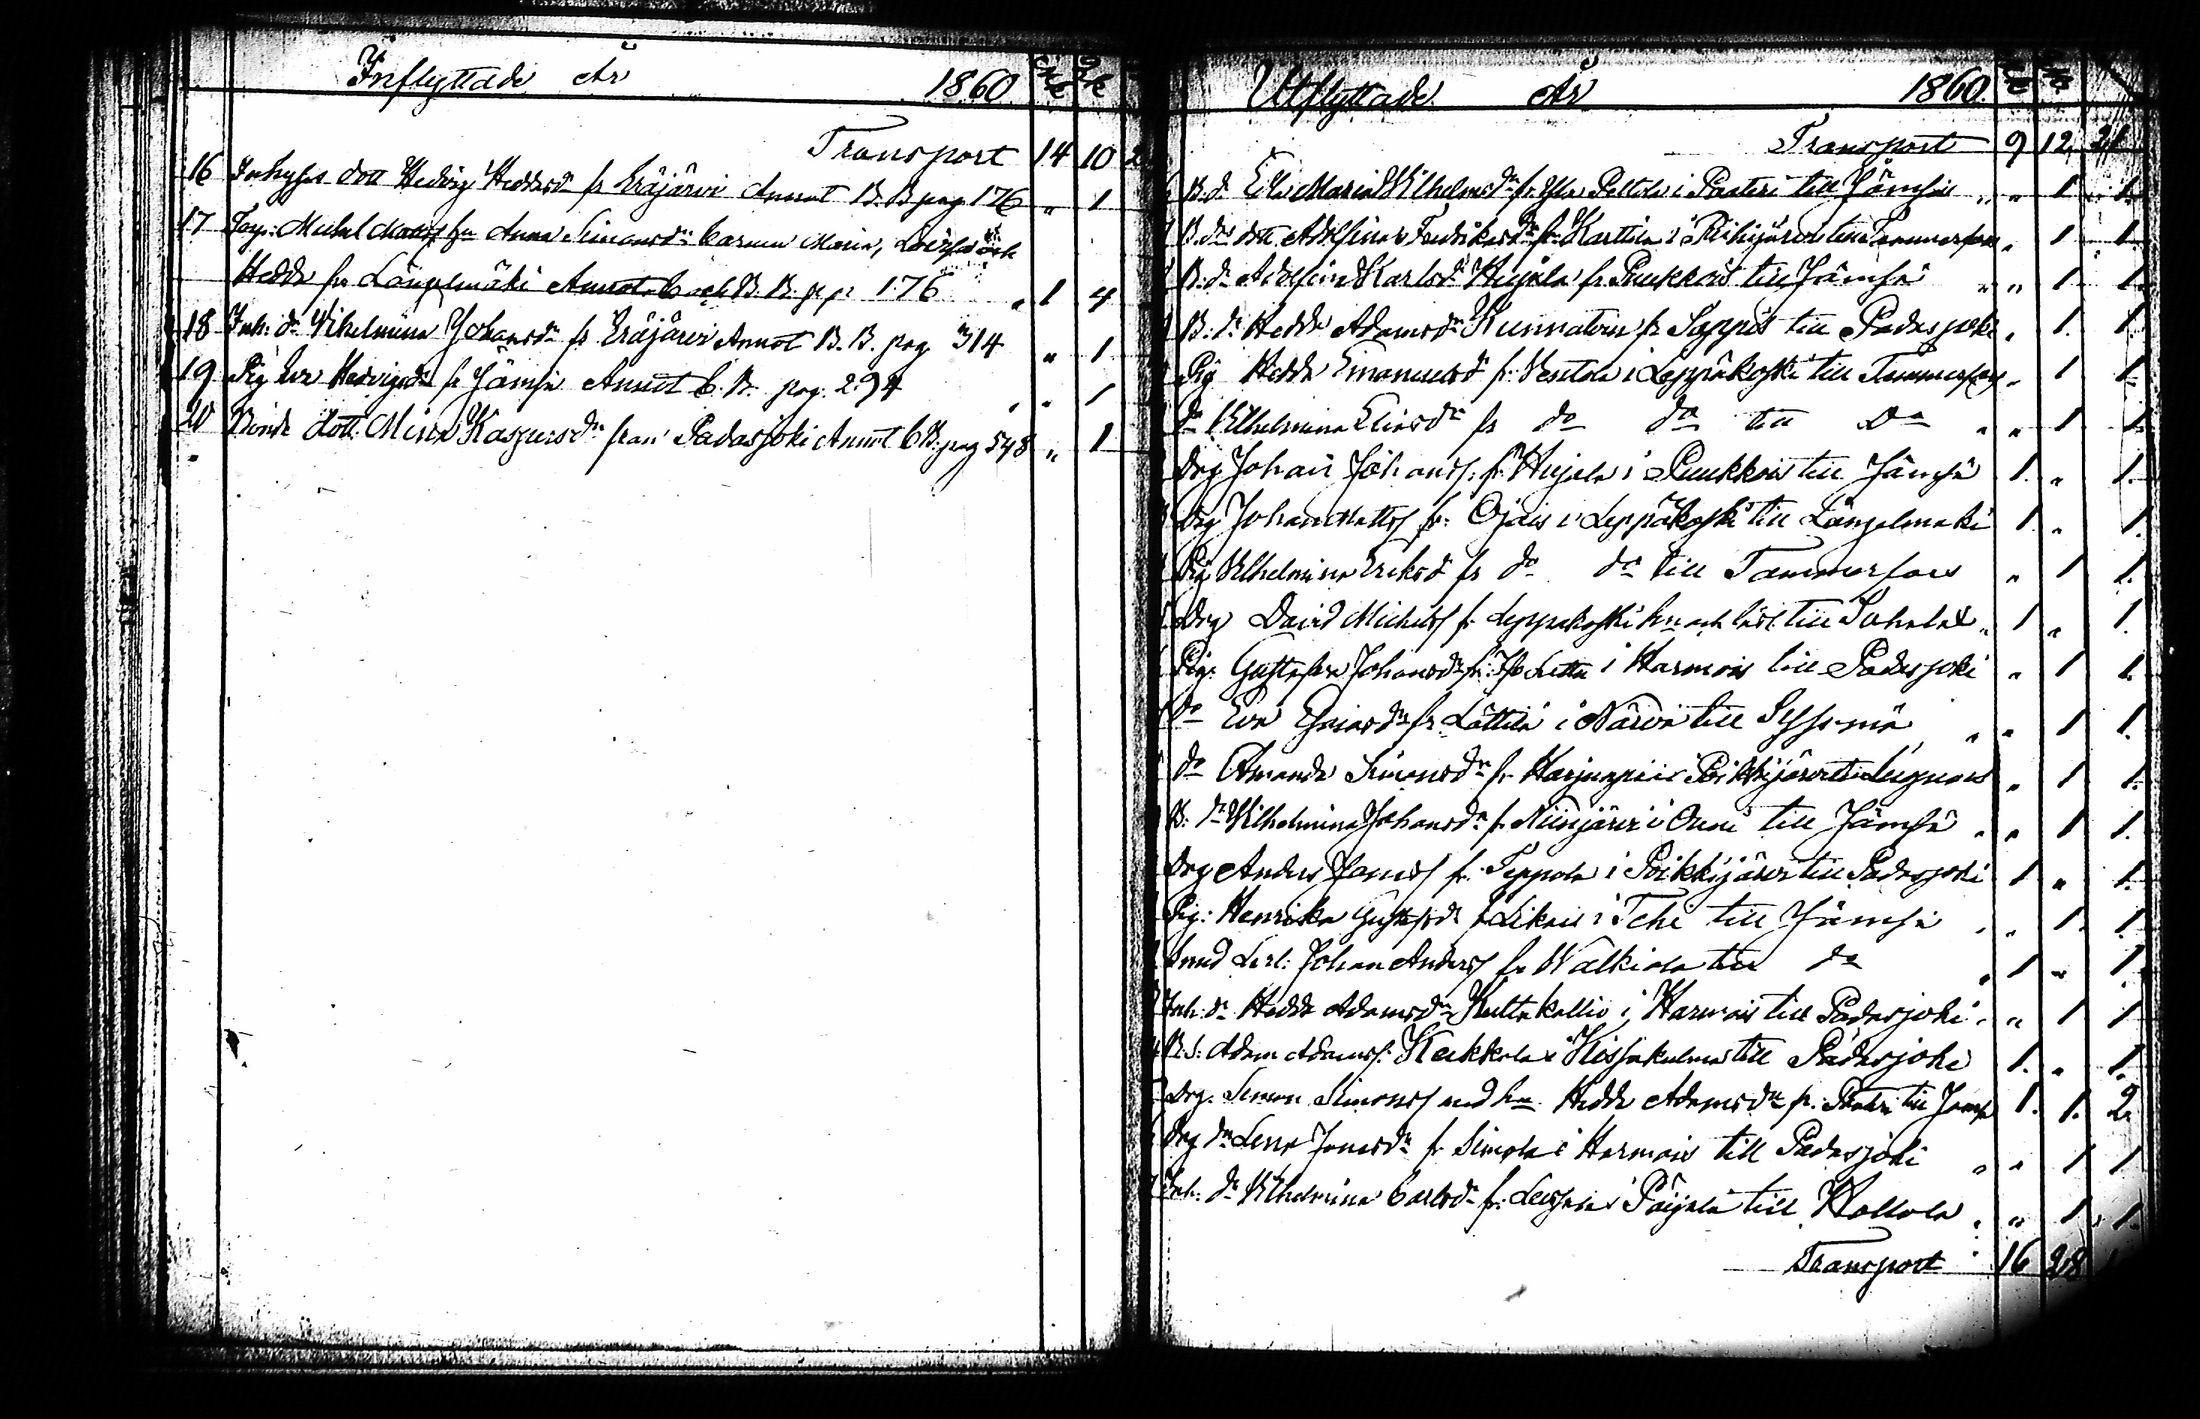 Inflyttade År 1860 Mk Qk
Transport 14 10 2
16 Inhyses dott Hedvig Heddasdr fr Eräjärvi Annot B. B pag 176 " 1
17 Torp: Michel Matts hu Anna Simonsdr barnen Maria, Lovisa och
Hedda fr Längelmäki Annot. b och B. B. p 176 " 1 4
18 Inh: dr Vilhelmina Johansdr fr Eräjärvi Annot B. B. pag 314 " 1
19 Pig Eva Hedvigsdr fr Jämsä Annot b. B. pag. 294 " " 1
20 Bonde dott. Mina Kaspersdr från Padasjoki Annot b B. pag 598 " 1
Utflyttade År 1860.
Transport 9 12 21
B. dr Eva Maria Vilhelmsdr fr Peltola i Paateri till Jämsä " " 1 1.
B. drs dott Adolfina Fredriksdr fr Karttila i Poikijärvi till Tammerfors " 1 1
B. dr Adolfina Karlsdr Hujala fr Puukkois till Jämsä " " 1 1.
B. dr Hedda Adamsdr Kunnaton fr Sappis till Padasjoki " 1. 1
Pig Hedda Emanuelsd fr. Ventola i Leppäkoski till Tammerfors " 1 1
do Vilhelmina Eliasdr fr do do till Do " " 1 1.
Drg Johan Johans. fr. Hujala i Puukkois till Jämsä 1. " 1.
Drg Johan Matts fr. Ojais i Leppäkoski till Längelmäki 1. " 1.
Pig Vilhelmina Eriksd fr do do till Tammerfors " 1 1.
Drg David Michels fr Leppäkoski till Sahalax " 1 " 1.
Pig. Gustafva Johansdr fr. i Harmois till Padasjoki " " 1 1.
do Eva Esaiasdr fr Lättilä i Narva till Sysmä " " 1 1.
do Amanda Simonsdr fr Harjunpää i Poikkijärvi till " 1 1.
B: dr Vilhelmina Johansdr fr Niinijärvi i Onni till Jämsä " " 1 1.
Drg Anders Jonass fr. Seppola i Poikkijärvi till Padasjoki 1 " 1.
Pig: Henrika Gustafsdr fr Leikais i Tehi till Jämsä " " 1. 1.
Smed Lerl: Johan Anders fr Walkiala till do " 1 " 1.
Inh: dr Hedda Adamsdr Kultakallio i Harmois till Padasjoki " " 1 1
B. s: Adam Adamss: Keukkola i Hissakulma till Padasjoki 1. " 1.
Drg. Simon Simons med hu Hedda Adamsdr fr. Paateri till Jämsä 1. 1. 2.
Drg dr Lena Jonasdr fr Simola i Harmois till Padasjoki " " 1 1
Inh: dr Vilhelmina Carlsdr fr. i Päijälä till Hollola " " 1 1.
Transport 16 28